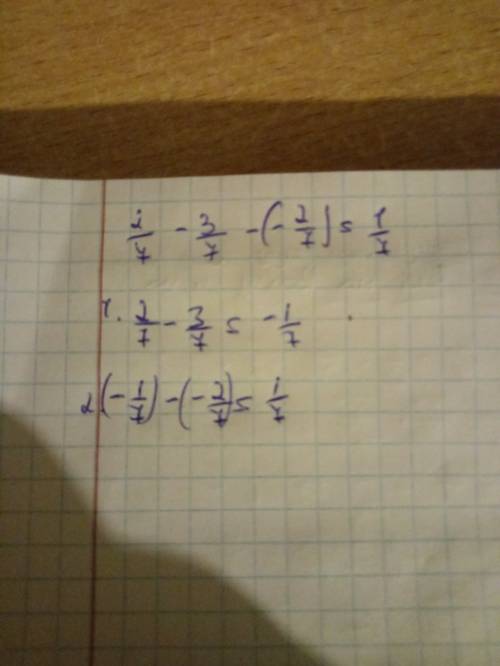 2/7 - 3/7 - (-2/7) = 1/7
1. 2/7 - 3/7 = -1/7
2 (-1/7) - (-2/7) = 1/7